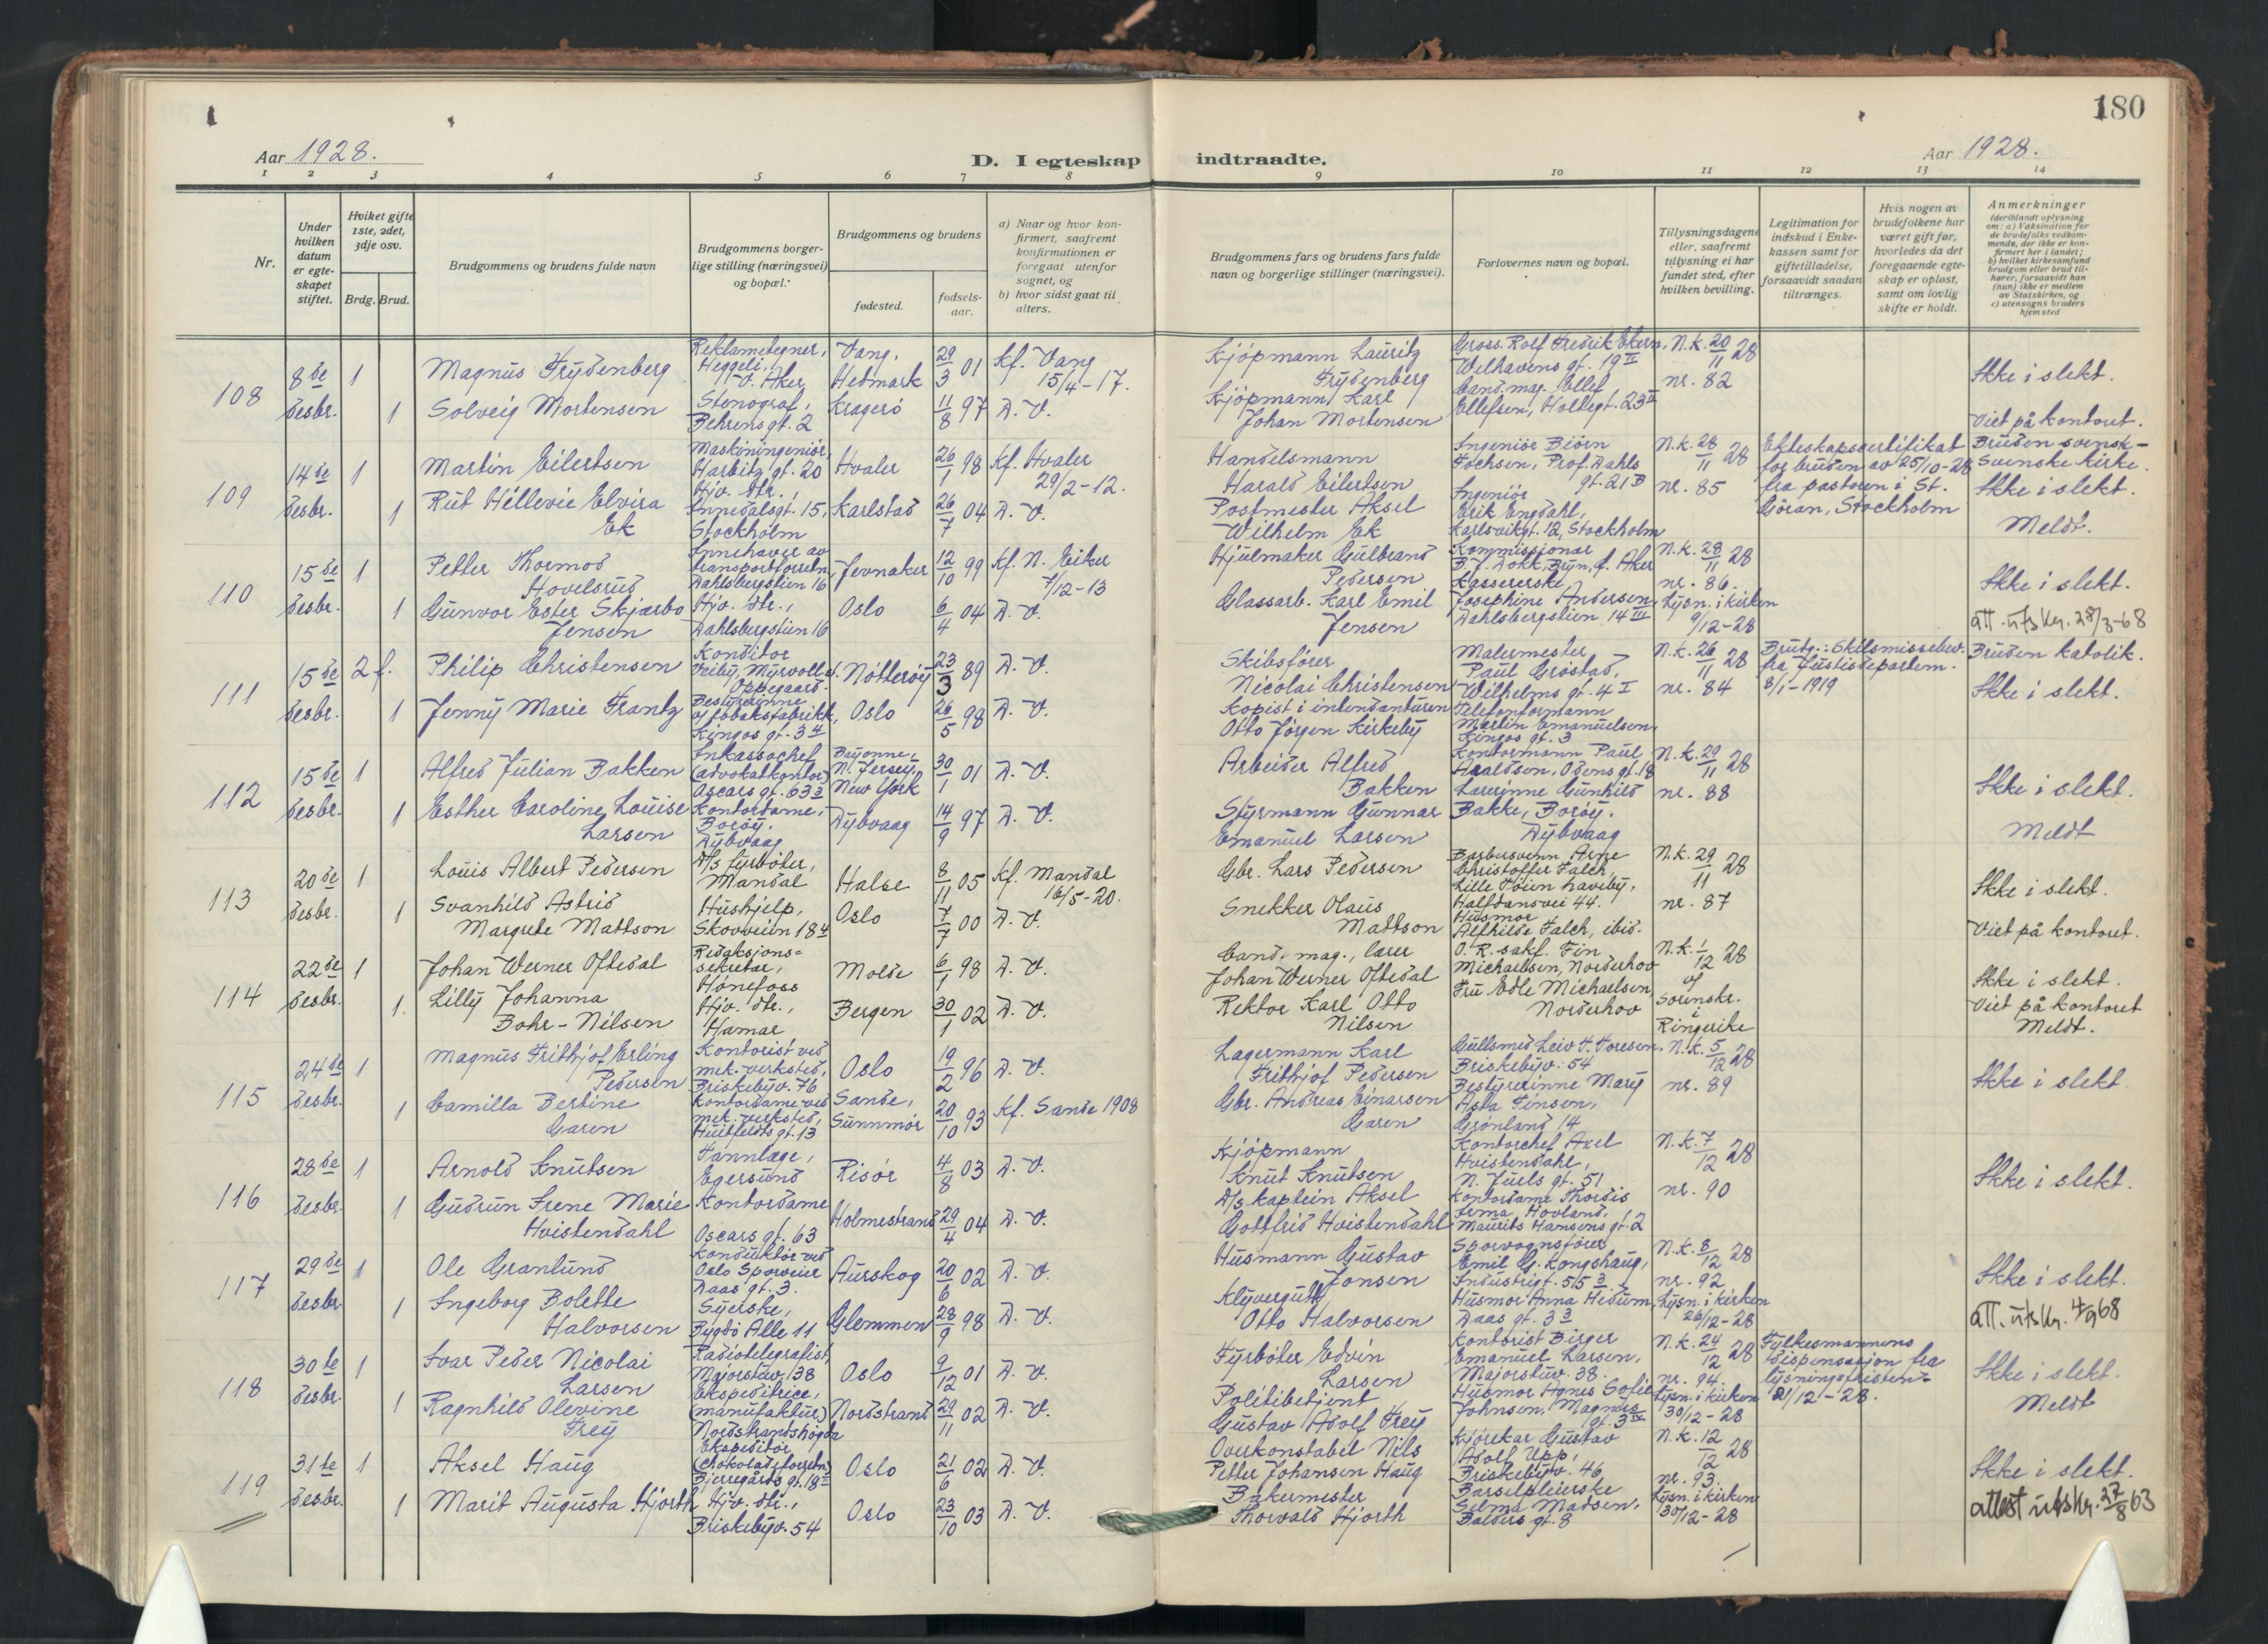 180
Aar 1928.
D. I egteskap indtraadte.
Aar 1928.
1 2 3 4 5 6 7 8 9 10 11 12 13 14
Nr.
Under hvilken datum er egteskapet stiftet.
Hviket gifte 1ste, 2det, 3dje osv.
Brdg. Brud.
Brudgommens og brudens fulde navn
Brudgommens borgerlige stilling (næringsvei) og bopæl.
Brudgommens og brudens
fødested.
fødselsaar.
a) Naar og hvor konfirmert, saafremt konfirmationen er foregaat utenfor sognet, og
b) hvor sidst gaat til alters.
Brudgommens fars og brudens fars fulde navn og borgerlige stillinger (næringsvei).
Forlovernes navn og bopæl.
Tillysningsdagene eller, saafremt tillysning ei har fundet sted, efter hvilken bevilling.
Legitimation for indskud i Enkekassen samt for giftetilladelse, forsaavidt saadan tiltrænges.
Hvis nogen av brudefolkene har været gift før, hvorledes da det foregaaende egteskap er opløst, samt om lovlig skifte er holdt.
Anmerkninger
(deriblandt oplysning om: a) Vaksination for de brudefolks vedkommende, der ikke er konfirmert her i landet;
b) hvilket kirkesamfund brudgom eller brud tilhører, forsaavidt han (hun) ikke er medlem av Statskirken, og
c) utensogns bruders hjemsted
108
8de desbr.
1 Magnus Frydenberg
Reklametegner, Heggeli, V. Aker
Vang, Hedmark
29/3 01
Kf. Vang 15/4-17.
Kjöpmann Lauritz Frydenberg
Gross. Rolf Fredrik Ekern, Welhavens gt. 19 II
N.k. 20/11 28
nr. 82
Ikke i slekt.
1 Solveig Mortensen
Stenograf, Behrens gt. 2
Kragerö
11/8 97
D.V.
Kjöpmann Karl Johan Mortensen
Cand. mag. Ellef Ellefsen, Holtegt. 23 II
Viet på kontoret.
109
14de desbr.
1 Martin Eilertsen
Maskiningeniör, Harbitz gt. 20
Hvaler
26/1 98
Kf. Hvaler 29/2-12.
Handelsmann Harald Eilertsen
Ingeniör Biörn Fochsen, Prof. Dahls gt. 21 B
N.k. 28/11 28
nr. 85
Ekteskapscertifikat for bruden av 25/10-28 fra pastoren i St. Göran, Stockholm
Bruden svensk - Svenske kirke.
Ikke i slekt.
Meldt.
1 Rut Hillevie Elvira Ek
Hjv. dtr., Innedalsgt. 15, Stockholm
Karlstad
26/7 04
D.V.
Postmester Aksel Wilhelm Ek
Ingeniör Erik Engdahl, Karlsvikgt. 12, Stockholm
110
15de desbr.
1 Petter Thormod Hovelsrud
Innehaver av transportforretn., Dahlsbergstien 16
Jevnaker
12/10 99
Kf. N. Eiker 7/12-13
Hjulmaker Gulbrand Pedersen
Kommissionær B.J. Dokk, Bryn, Ö. Aker
N.k. 28/11 28
nr. 86.
Ikke i slekt.
1 Gunvor Ester Skjærbo Jensen
Hjv. dtr., Dahlsbergstien 16
Oslo
6/4 04
D.V.
Glassarb. Karl Emil Jensen
Kassererske, Josephine Andersen, Dahlsbergstien 14 III
Lysn. i kirken 9/12-28
att. utskr. 28/3-68
111
15de desbr.
2 f. Philip Christensen
Konditor Veiby, Myrvoll st. Oppegaard.
Nötteröy
23/3 89
D.V.
Skibsförer Nicolai Christensen
Malermester Paul Gröstad, Wilhelms gt. 4 I
N.k. 26/11 28
nr. 84
Brutg.: Skilsmissebev. fra Justisdepartem. 8/1-1919
Bruden katolik.
Ikke i slekt.
1 Jenny Marie Frantz
Bestyrerinne av tobaksfabrikk, Kingos gt. 3 4
Oslo
26/5 98
D.V.
Kopist i intendanturen Otto Jörgen Kirkeby
Telefonformann Martin Emanuelsen, Kingos gt. 3
112
15de desbr.
1 Alfred Julian Bakken
Inkassochef (advokatkontor) Oscars gt. 63 3
Bayonne, N. Jersey, New York
30/1 01
D.V.
Arbeider Alfred Bakken
Kontormann Paul Haraldsen, Odens gt. 18
N.k. 29/11 28
nr. 88
Ikke i slekt.
1 Esther Caroline Louise Larsen
Kontordame, Boröy, Dybvaag
Dybvaag
14/9 97
D.V.
Styrmann Gunnar Emanuel Larsen
Lærerinne Gunhild Bakke, Boröy, Dybvaag
Meldt
113
20de desbr.
1 Louis Albert Pedersen
D/s fyrböter, Mandal
Halse
8/11 05
Kf. Mandal 16/5-20.
Gbr. Lars Pedersen
Barbersvenn Arne Christoffer Falch, Lille Töien haveby, Halfdansvei 44.
N.k. 29/11 28
nr. 87
Ikke i slekt.
1 Svanhild Astrid Margrete Mattson
Hushjelp, Skovveien 18 4
Oslo
7/7 00
D.V.
Snekker Olaus Mattson
Husmor Alfhilde Falch, ibid.
Viet på kontoret.
114
22de desbr.
1 Johan Werner Oftedal
Redaksjonssekretær, Hönefoss
Molde
6/1 98
D.V.
Cand. mag., lærer Johan Werner Oftedal
O.R. sakf. Finn Michaelsen, Norderhov
N.k. 1/12 28
av Sorenskr. i Ringerike
Ikke i slekt.
1. Lilly Johanna Bohr-Nilsen
Hjv. dtr., Hamar
Bergen
30/1 02
D.V.
Rektor Karl Otto Nilsen
Fru Edle Michaelsen, Norderhov
Viet på kontoret
Meldt.
115
24de desbr.
1 Magnus Frithjof Erling Pedersen
Kontorist ved mek. verksted, Briskebyv. 76
Oslo
19/2 96
D.V.
Lagermann Karl Frithjof Pedersen
Gullsmed Leiv F. Toresen, Briskebyv. 54
N.k. 5/12 28
nr. 89
Ikke i slekt
1 Camilla Bertine Garen
Kontordame ved mek. verksted, Huitfeldts gt. 13
Sande, Sunnmör
20/10 93
Kf. Sande 1908
Gbr. Andreas Einarsen Garen
Bestyrerinne Mary Asta Finsen, Grönland 14
116
28de desbr.
1 Arnold Knutsen
Tannlæge, Egersund
Risör
4/8 03
D.V.
Kjöpmann Knut Knutsen
Kontorchef Axel Hvistendahl, N. Juels gt. 51
N.k. 7/12 28
nr. 90
Ikke i slekt.
1 Gudrun Irene Marie Hvistendahl
Kontordame Oscars gt. 63
Holmestrand
29/4 04
D.V.
D/s kaptein Aksel Gottfrid Hvistendahl
Kontordame Thordis Irma Hovland, Maurits Hansens gt. 2
117
29de desbr.
1 Ole Granlund
Konduktör ved Oslo Sporveier Daas gt. 3.
Aurskog
20/6 02
D.V.
Husmann Gustav Jonsen
Sporvognsförer Emil G. Kongshaug, Industrigt. 55 3
N.k. 8/12 28
nr. 92
Ikke i slekt.
1 Ingeborg Bolette Halvorsen
Syerske, Bygdö Alle 11
Glemmen
28/9 98
D.V.
Klyvergutt Otto Halvorsen
Husmor Anna Hidum, Daas gt. 3 3
Lysn. i kirken 26/12-28
att. utskr. 4/9 68
118
30te desbr.
1 Ivar Peder Nicolai Larsen
Radiotelegrafist, Majorstuv. 38
Oslo
9/12 01
D.V.
Fyrböter Edvin Larsen
Kontorist Birger Emanuel Larsen, Majorstuv. 38.
N.k. 24/12 28
nr. 94.
Fylkesmannens dispensasjon fra lysningsfristen 21/12-28.
Ikke i slekt.
1 Ragnhild Olevine Frey
Ekspeditrice, (manufaktur) Nordstrandshögda
Nordstrand
29/11 02
D.V.
Politibetjent Gustav Adolf Frey
Husmor Agnes Sofie Johnsen, Magnus gt. 3 IV
Lysn. i kirken 30/12-28
Meldt
119
31te desbr.
1 Aksel Haug
Ekspeditör (chokoladeforretn.) Bjerregårds gt. 18 II
Oslo
21/6 02
D.V.
Overkonstabel Nils Petter Johansen Haug
Kjörekar Gustav Adolf Upp, Briskebyv. 46
N.k. 12/12 28
nr. 93.
Ikke i slekt.
1 Marit Augusta Hjorth
Hjv. dtr., Briskebyv. 54
Oslo
23/10 03
D.V.
Bakermester Thorvald Hjorth
Barselpleierske Selma Madsen, Balders gt. 8
Lysn. i kirken 30/12-28
attest utskr. 27/8 63